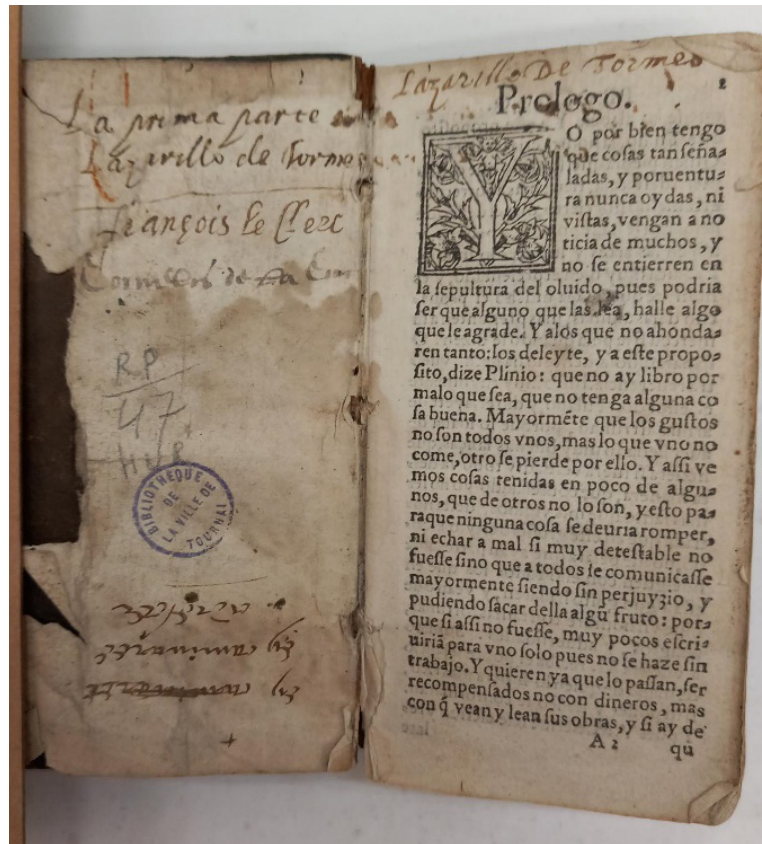 La prima parte
Lazarillo de Tormes
François le Clerc
RP
47
BIBLIOTHEQUE
DE
LA VILLE DE
TOURNAI
Lazarillo De Tormes
Prologo. 2
YO por bien tengo
que coſas tan ſeña⸗
ladas, y poruentu⸗
ra nunca oydas, ni
viſtas, vengan a no
ticia de muchos, y
no ſe entierren en
la ſepultura del oluido, pues podria
ſer que alguno que las lea, halle algo
que le agrade. Y a los que no ahonda⸗
ren tanto: los deleyte, y a eſte propo⸗
ſito, dize Plinio: que no ay libro por
malo que ſea, que no tenga alguna co
ſa buena. Mayormẽte que los guſtos
no ſon todos vnos, mas lo que vno no
come, otro ſe pierde por ello. Y aſſi ve
mos coſas tenidas en poco de algu⸗
nos, que de otros no lo ſon, y eſto pa⸗
ra que ninguna coſa ſe deuria romper,
ni echar a mal ſi muy deteſtable no
fueſſe ſino que a todos ſe comunicaſſe
mayormente ſiendo ſin perjuyzio, y
pudiendo ſacar della algũ fruto: por⸗
que ſi aſſi no fueſſe, muy pocos eſcri⸗
uiriã para vno ſolo pues no ſe haze ſin
trabajo. Y quieren ya que lo paſſan, ſer
recompenſados no con dineros, mas
con q̃ vean y lean ſus obras, y ſi ay de
A 2 qũ